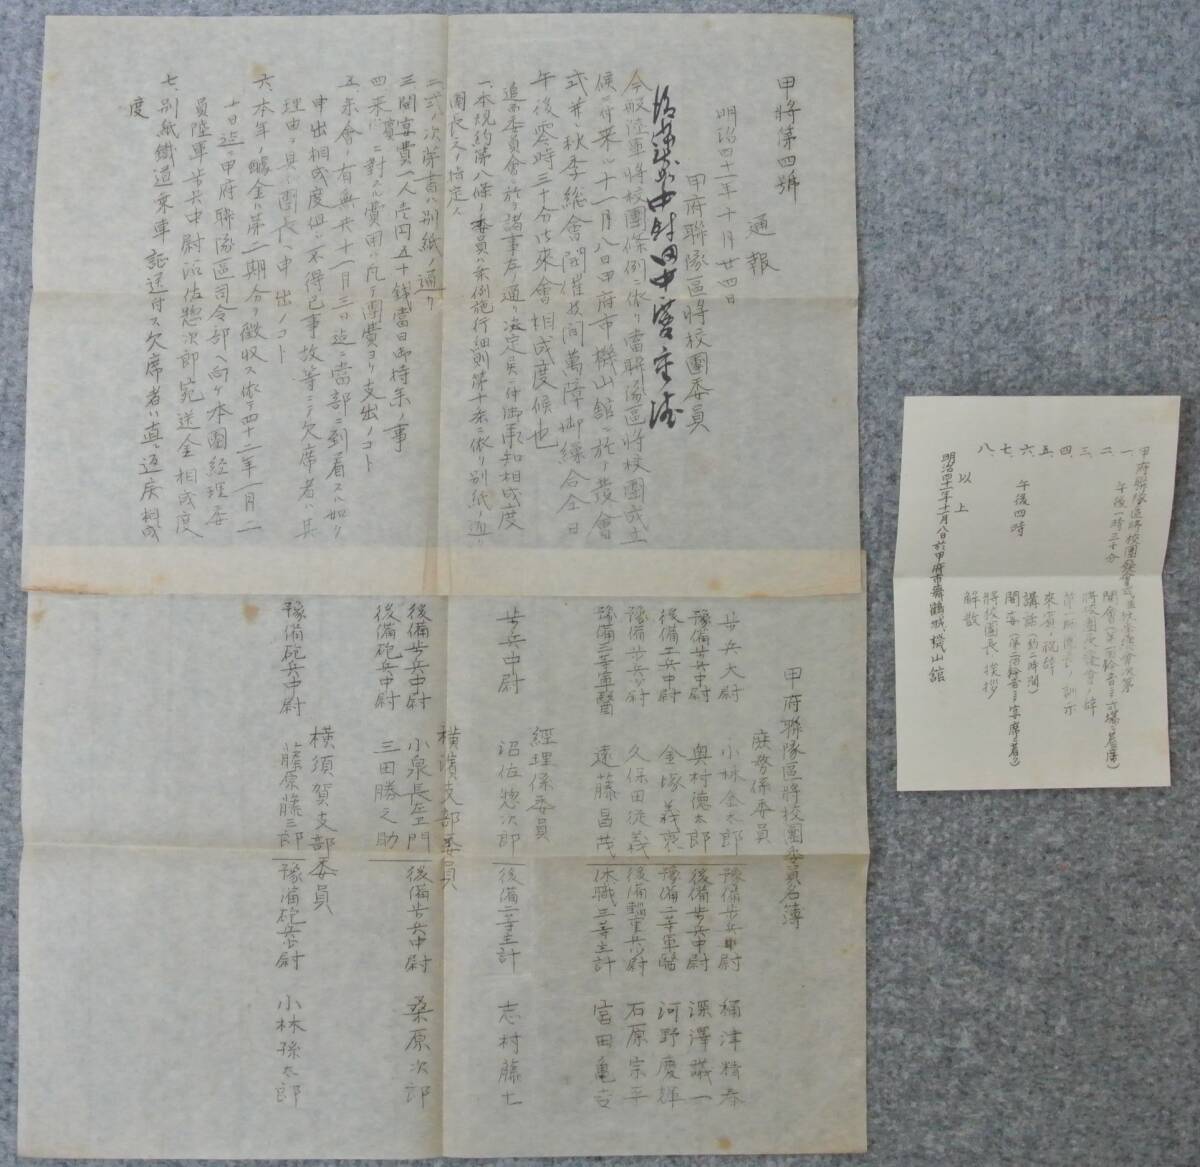 甲將第四號
通報
明治四十一年十月廿四日
甲府聯隊區將校團委員
中尉田中
今般陸軍將校團條例ニ依リ當聯隊區將校團成立
候ニ付来ル十一月八日甲府市機山舘ニ於テ發會
式並ニ秋季総會開催致候間萬障御繰合仝日
午後零時三十分御來會相成度候也
追而委員會ニ於テ諸事左ノ通リ決定候ニ付御承知相成度
一、本規約第八條ノ委員ハ条例施行細則第十条ニ依リ別紙ノ通リ
團長之ヲ指定ス
二、式ノ次第書ハ別紙ノ通リ
三、開宴費一人壱円五十銭當日御持参ノ事
四、来賓ニ對スル費用ハ凡テ團費ヨリ支出ノコト
五、来會ノ有無共十一月三日迄ニ當部ニ到着スル如ク
申出相成度但シ不得已事故等ニテ欠席者ハ其
理由ヲ具シ團長ヘ申出ノコト
六、本年ノ醵金ハ第二期分ヲ徴収ス依テ四十二年一月二
十日迄ニ甲府聯隊區司令部ヘ向ケ本團経理委
員陸軍歩兵中尉沼佐惣次郎宛送金相成度
七、別紙鐵道乗車証送付ス欠席者ハ直ニ返戻相成
度
甲府聯隊區將校團委員名簿
庶務係委員
歩兵大尉 小林金太郎 豫備歩兵中尉 桶津精泰
豫備歩兵中尉 奥村德太郎 後備歩兵中尉 深澤議一
後備工兵中尉 金塚義衷 豫備二等軍醫 河野慶輝
豫備歩兵少尉 久保田従義 後備輜重兵少尉 石原宗平
豫備三等軍醫 遠藤昌茂 休職三等主計 宮田亀吉
経理係委員
歩兵中尉 沼佐惣次郎 後備二等主計 志村藤七
横濱支部委員
後備歩兵中尉 小泉長左エ門 後備歩兵中尉 桑原次郎
後備砲兵中尉 三田勝之助
横須賀支部委員
豫備砲兵中尉 藤原藤三郎 豫備砲兵少尉 小林孫太郎
甲府聯隊區將校團發會式並秋季総會次第
午後一時三十分
一、開會(第一鈴音ニテ式場ニ着席)
二、將校團長發會ノ辞
三、訓示
四、来賓ノ祝辞
五、講話(約二時間)
午後四時
六、開宴(第二鈴音ニテ宴席ニ着ク)
七、將校團長挨拶
八、解散
以上
明治四十一年十一月八日於甲府市舞鶴城機山舘